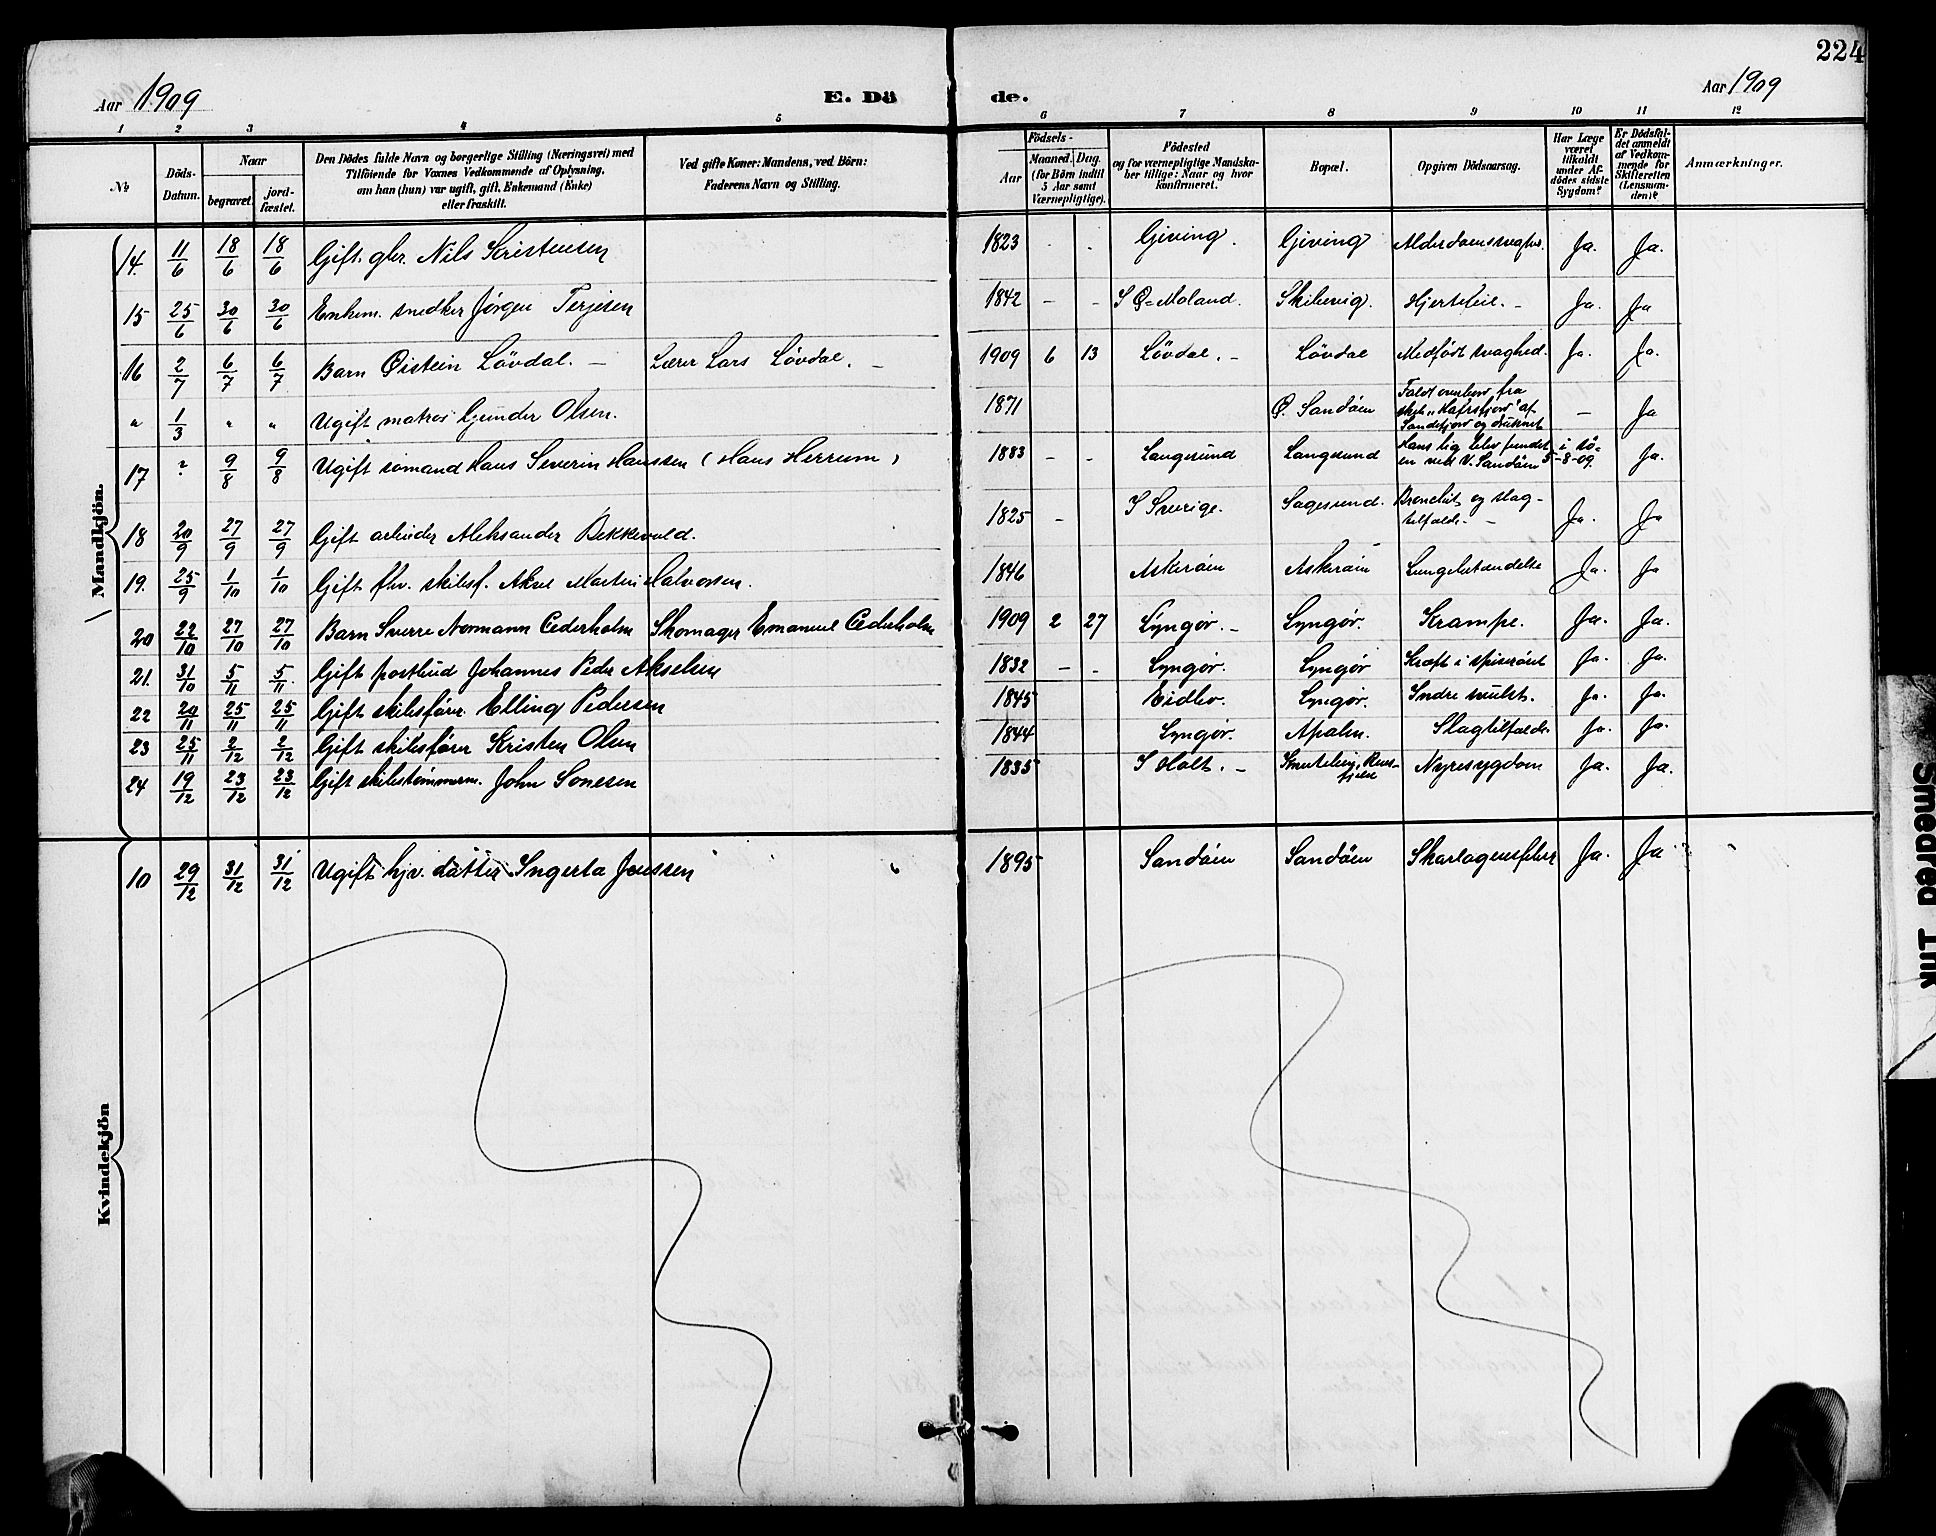 224
Aar 1909 E. Dö de. Aar 1909
1 2 3 4 5 6 7 8 9 10 11 12
№ Döds-Datum. Naar begravet. jord-fæstet. Den Dödes fulde Navn og borgerlige Stilling (Næringsvei) med Tilföiende for Voxnes Vedkommende af Oplysning, om han (hun) var ugift, gift, Enkemand (Enke) eller fraskilt. Ved gifte Koner: Mandens, ved Börn: Faderens Navn og Stilling. Födsels- Aar Maaned. Dag. (for Börn indtil 5 Aar samt Værnepligtige). Födested og for værnepligtige Mandskaber tillige: Naar og hvor konfirmeret. Bopæl. Opgiven Dödsaarsag. Har Læge været tilkaldt under Afdödes sidste Sygdom? Er Dödsfaldet anmeldt af Vedkommende for Skifteretten (Lensmanden)? Anmærkninger.
Mandkjön.
14. 11/6 18/6 18/6 Gift. gbr. Nils Kristensen 1823 - - Giving. Giving Alderdomssvaghed Ja. Ja.
15 25/6 30/6 30/6 Enkem. snedker Jørgen Terjesen 1842 - - I Ø-Moland. Skibevig. Hjertefeil. - Ja. Ja
16 2/7 6/7 6/7 Barn Øistein Lövdal. - Lærer Lars Lövdal. - 1909 6 13 Lövdal. - Lövdal Medfödt svaghed. Ja. Ja.
" 1/3 " " Ugift matros Gunder Olsen. 1871 Ø. Sandöen Faldt overbord fra skib "Hafrsfjord" af Sandefjord og druknet - Ja
17 ? 9/8 9/8 Ugift sömand Hans Severin Hanssen (Hans Herrum) 1883 - - Langesund Langesund Hans lig blev fundet i sö-en ved V. Sandöen 5-8-09. Ja.
18 20/9 27/9 27/9 Gift arbeider Aleksander Bekkevold. 1825 - I Sverige. Sagesund. Bronchit og slag-tilfælde. - Ja. Ja
19. 25/9 1/10 1/10 Gift fhv. skibsf. Aksel Martin Halvorsen. 1846 Askeröen Askeröen Lungebetændelse Ja. Ja
20 22/10 27/10 27/10 Barn Sverre Normann Cederholm Skomager Emanuel Cederholm 1909 2 27 Lyngør. - Lyngør. Krampe. Ja. Ja.
21. 31/10 5/11 5/11. Gift postbud Johannes Peder Akselsen 1832 - - Lyngør. Lyngør Kræft i spiseröret Ja. Ja.
22 20/11 25/11 25/11 Gift skibsförer Elling Pedersen 1845 Eidbo. Lyngør. Indre svulst. Ja. Ja.
23 25/11 2/12 2/12 Gift skibsförer Kristen Olsen 1844 Lyngør. Apalen. Slagtilfælde Ja. Ja.
24 19/12 23/12 23/12 Gift skibstömmerm. John Sonesen 1835 I Holt. - Nyresygdom Ja. Ja.
Kvindekjön
10 29/12 31/12 31/12 Ugift hjv. datter Ingerta Jenssen 1895 Sandöen Sandöen Skarlagensfeber Ja. Ja
Smeared Ink